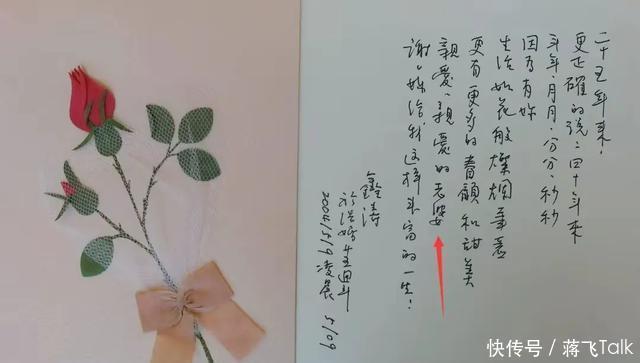 二十五年来，
更正確的說：四十年来
年年、月月、分分、秒秒
因为有妳
生活如花般燦爛
更有更多的 和甜美
親愛、親愛的老婆
謝謝妳給我這樣丰富的一生！
鑫涛
於結婚廿五週年
2004/5/9 凌晨 5/09
快传号 / 蒋飞Talk